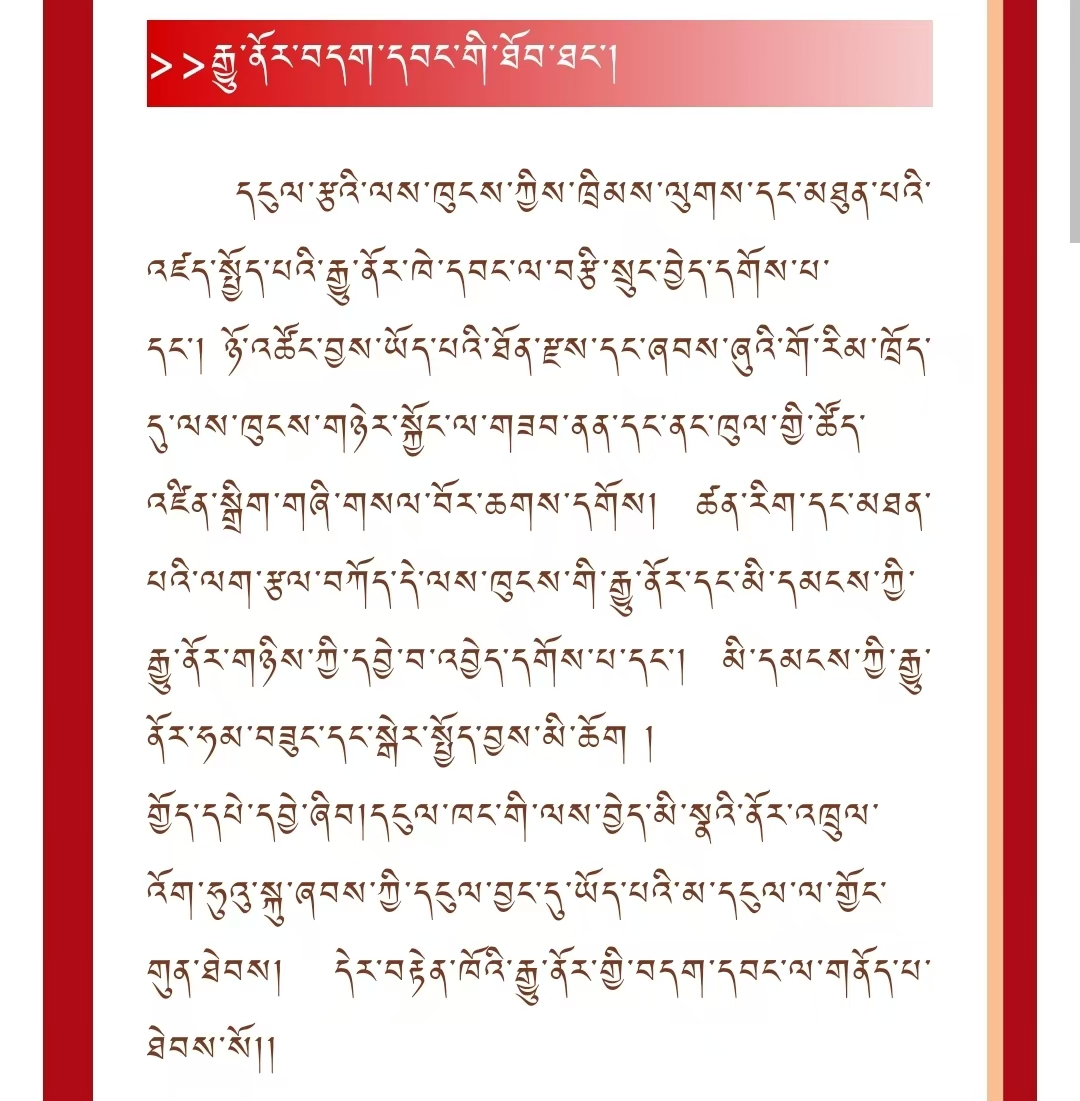 >>རྒྱུ་ནོར་བདག་དབང་གི་ཐོབ་ཐང་།
དངུལ་རྩའི་ལས་ཁུངས་ཀྱིས་ཁྲིམས་ལུགས་དང་མཐུན་པའི་
འཛད་སྤྱོད་པའི་རྒྱུ་ནོར་ཁེ་དབང་ལ་བརྩི་སྲུང་བྱེད་དགོས་པ་
དང་། ཉོ་འཚོང་བྱས་ཡོད་པའི་ཐོན་རྫས་དང་ཞབས་ཞུའི་གོ་རིམ་ཁྲོད་
དུ་ལས་ཁུངས་གཉེར་སྐྱོང་ལ་གཟབ་ནན་དང་ནང་ཁུལ་གྱི་ཚོད་
འཛིན་སྒྲིག་གཞི་གསལ་བོར་ཆགས་དགོས། ཚན་རིག་དང་མཐན་
པའི་ལག་རྩལ་བཀོད་དེ་ལས་ཁུངས་གི་རྒྱུ་ནོར་དང་མི་དམངས་ཀྱི་
རྒྱུ་ནོར་གཉིས་ཀྱི་དབྱེ་བ་འབྱེད་དགོས་པ་དང་། མི་དམངས་ཀྱི་རྒྱུ་
ནོར་ཧམ་བཟུང་དང་སྒེར་སྤྱོད་བྱས་མི་ཆོག །
གྱོད་དཔེ་དབྱེ་ཞིབ།དངུལ་ཁང་གི་ལས་བྱེད་མི་སྣའི་ནོར་འཁྲུལ་
འོག་ཧུའུ་སྐུ་ཞབས་ཀྱི་དངུལ་བྱང་དུ་ཡོད་པའི་མ་དངུལ་ལ་གྱོང་
གུན་ཐེབས། དེར་བརྟེན་ཁོའི་རྒྱུ་ནོར་གྱི་བདག་དབང་ལ་གནོད་པ་
ཐེབས་སོ།།